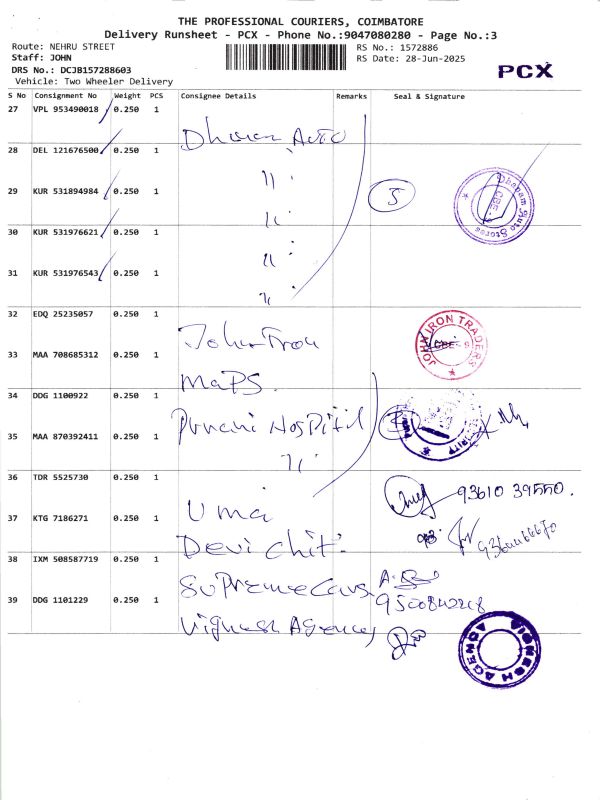 THE PROFESSIONAL COURIERS, COIMBATORE
Delivery Runsheet - PCX - Phone No.:9047080280 - Page No.:3
Route: NEHRU STREET
RS No.: 1572886
Staff: JOHN
RS Date: 28-Jun-2025
DRS No.: DCJB157288603
PCX
Vehicle: Two Wheeler Delivery
S No Consignment No Weight PCS Consignee Details Remarks Seal & Signature
27 VPL 953490018 0.250 1
Auto
28 DEL 121676500 0.250 1
29 KUR 531894984 0.250 1
5
Dhanam Auto Stores
CBE
30 KUR 531976621 0.250 1
31 KUR 531976543 0.250 1
32 EDQ 25235057 0.250 1
John Iron
JOHN IRON TRADERS
CBE-9
33 MAA 708685312 0.250 1
MaPS.
34 DDG 1100922 0.250 1
Hospital
SECURITY
35 MAA 870392411 0.250 1
36 TDR 5525730 0.250 1
Uma
93610 39550.
37 KTG 7186271 0.250 1
Devi chit.
38 IXM 508587719 0.250 1
Supreme
39 DDG 1101229 0.250 1
Vignesh Agency
VIGNESH AGENCY